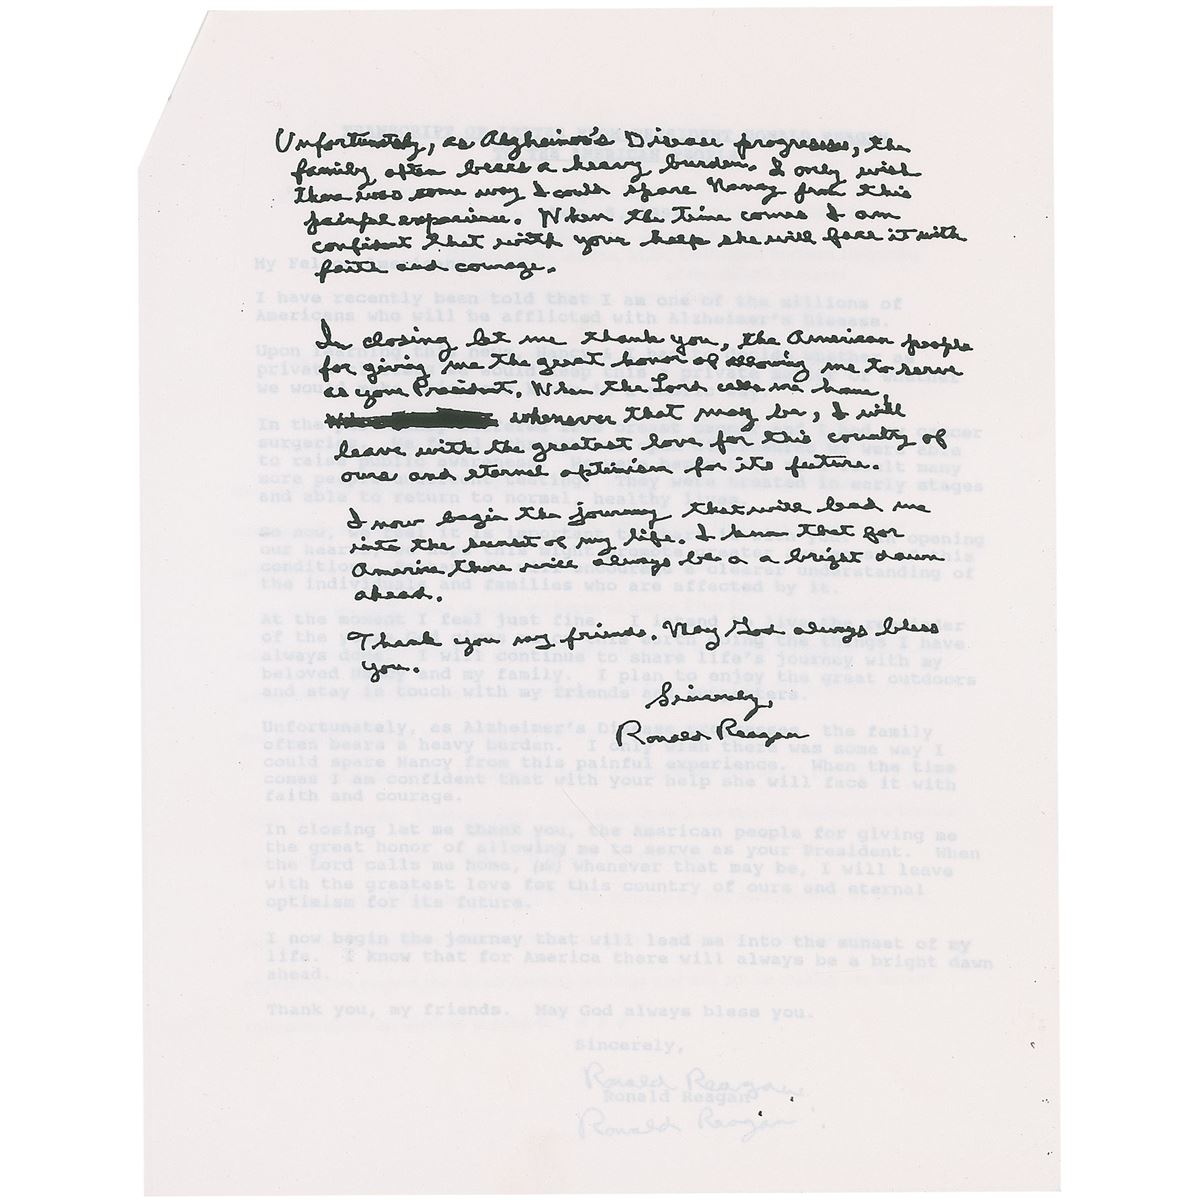 Unfortunately, as Alzheimer's Disease progresses, the
family often bears a heavy burden. I only wish
there was some way I could spare Nancy from this
painful experience. When the time comes I am
confident that with your help she will face it with
faith and courage.
In closing let me thank you, the American people
for giving me the great honor of allowing me to serve
as your President. When the Lord calls me home,
whenever that may be, I will
leave with the greatest love for this country of
ours and eternal optimism for its future.
I now begin the journey that will lead me
into the sunset of my life. I know that for
America there will always be a bright dawn
ahead.
Thank you my friends. May God always bless
you.
Sincerely,
Ronald Reagan
My
I have recently been told that I am one of the millions of
Americans who will be afflicted with Alzheimer's Disease.
Upon
In
surgeries.
to raise
more They were treated in early stages
and able to return to normal, healthy lives.
So now, opening
our this
condition. a clearer understanding of
the individuals and families who are affected by it.
At the moment I feel just fine. I
of the the things I have
always I will continue to share life's journey with my
beloved Nancy and my family. I plan to enjoy the great outdoors
and stay in touch with my friends
Unfortunately, as Alzheimer's the family
often bears a heavy burden. I only wish there was some way I
could spare Nancy from this painful experience. When the time
comes I am confident that with your help she will face it with
faith and courage.
In closing let me thank you, the American people for giving me
the great honor of allowing me to serve as your President. When
the Lord calls me home, whenever that may be, I will leave
with the greatest love for this country of ours and eternal
optimism for its future.
I now begin the journey that will lead me into the sunset of my
life. I know that for America there will always be a bright dawn
ahead.
Thank you, my friends. May God always bless you.
Sincerely,
Ronald Reagan
Ronald Reagan
Ronald Reagan